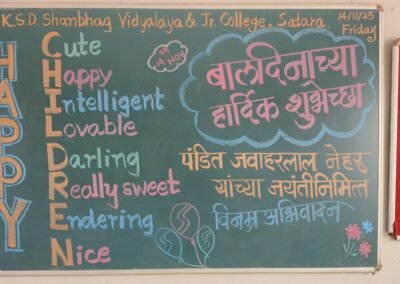 K.S.D. Shanbhag Vidyalaya & Jr. College, Satara.
14/11/25
Friday
HAPPY
CHILDREN
Cute
Happy
Intelligent
Lovable
Darling
Really sweet
Endering
Nice
14 Nov
बालदिनाच्या
हार्दिक शुभेच्छा
पंडित जवाहरलाल नेहरू
यांच्या जयंतीनिमित्त
विनम्र अभिवादन